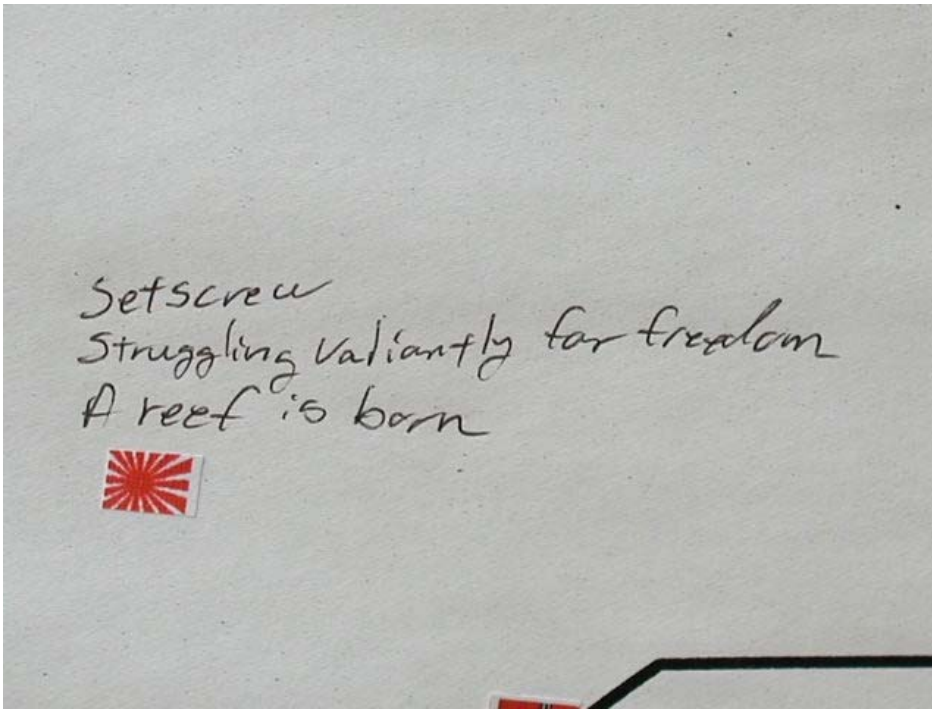 Setscrew
Struggling Valiantly for freedom
A reef is born